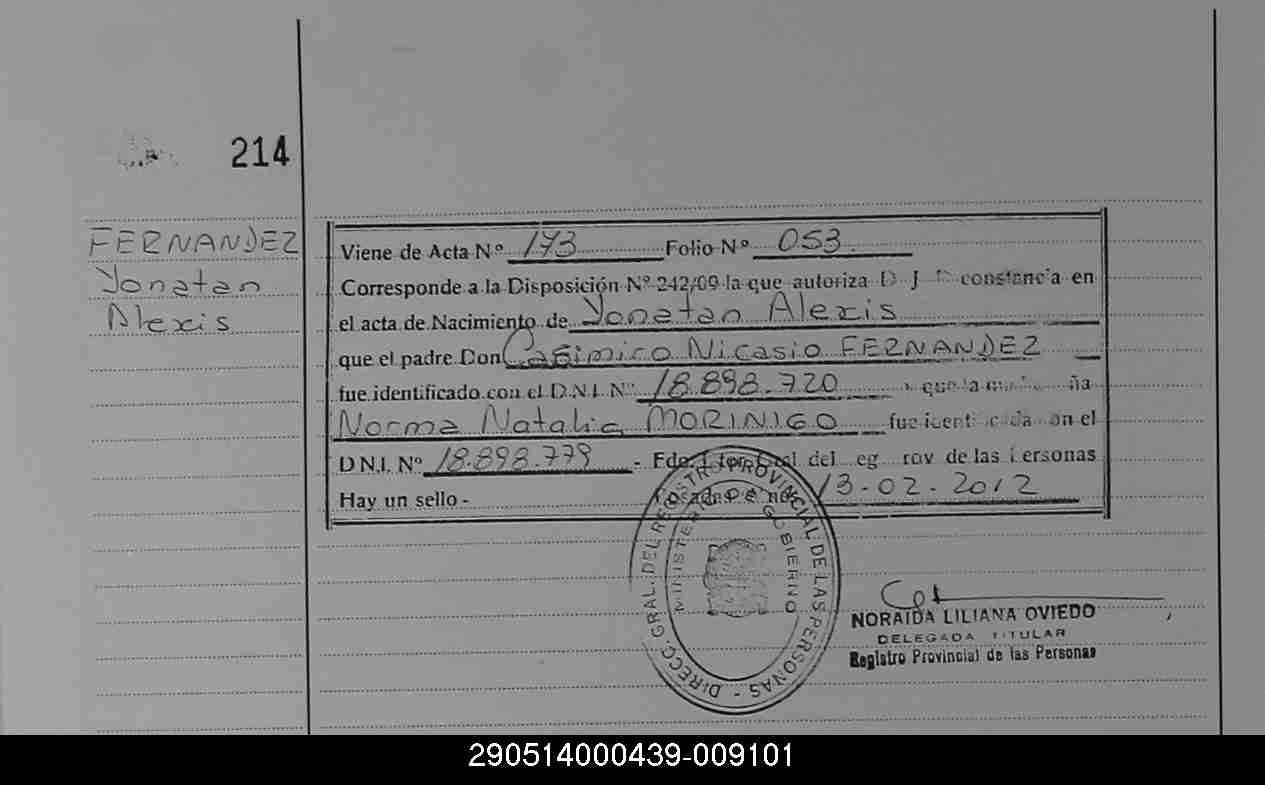 214
FERNANDEZ
Yonatan
Alexis
Viene de Acta Nº 173 Folio Nº 053.
Corresponde a la Disposición Nº 242/09 la que autoriza D J constancia en
el acta de Nacimiento de Yonatan Alexis
que el padre Don Casimiro Nicasio FERNANDEZ
fue identificado con el D.N.I. Nº 18.898.720 que la
Norma Natalia MORINIGO fue el
D.N.I. Nº 18.898.779 - Fdo. del de las Personas
Hay un sello - Posadas 13-02-2012
DIRECC. GRAL. DEL REGISTRO PROVINCIAL DE LAS PERSONAS -
MINISTERIO DE GOBIERNO
NORAIDA LILIANA OVIEDO
DELEGADA TITULAR
Registro Provincial de las Personas
290514000439-009101